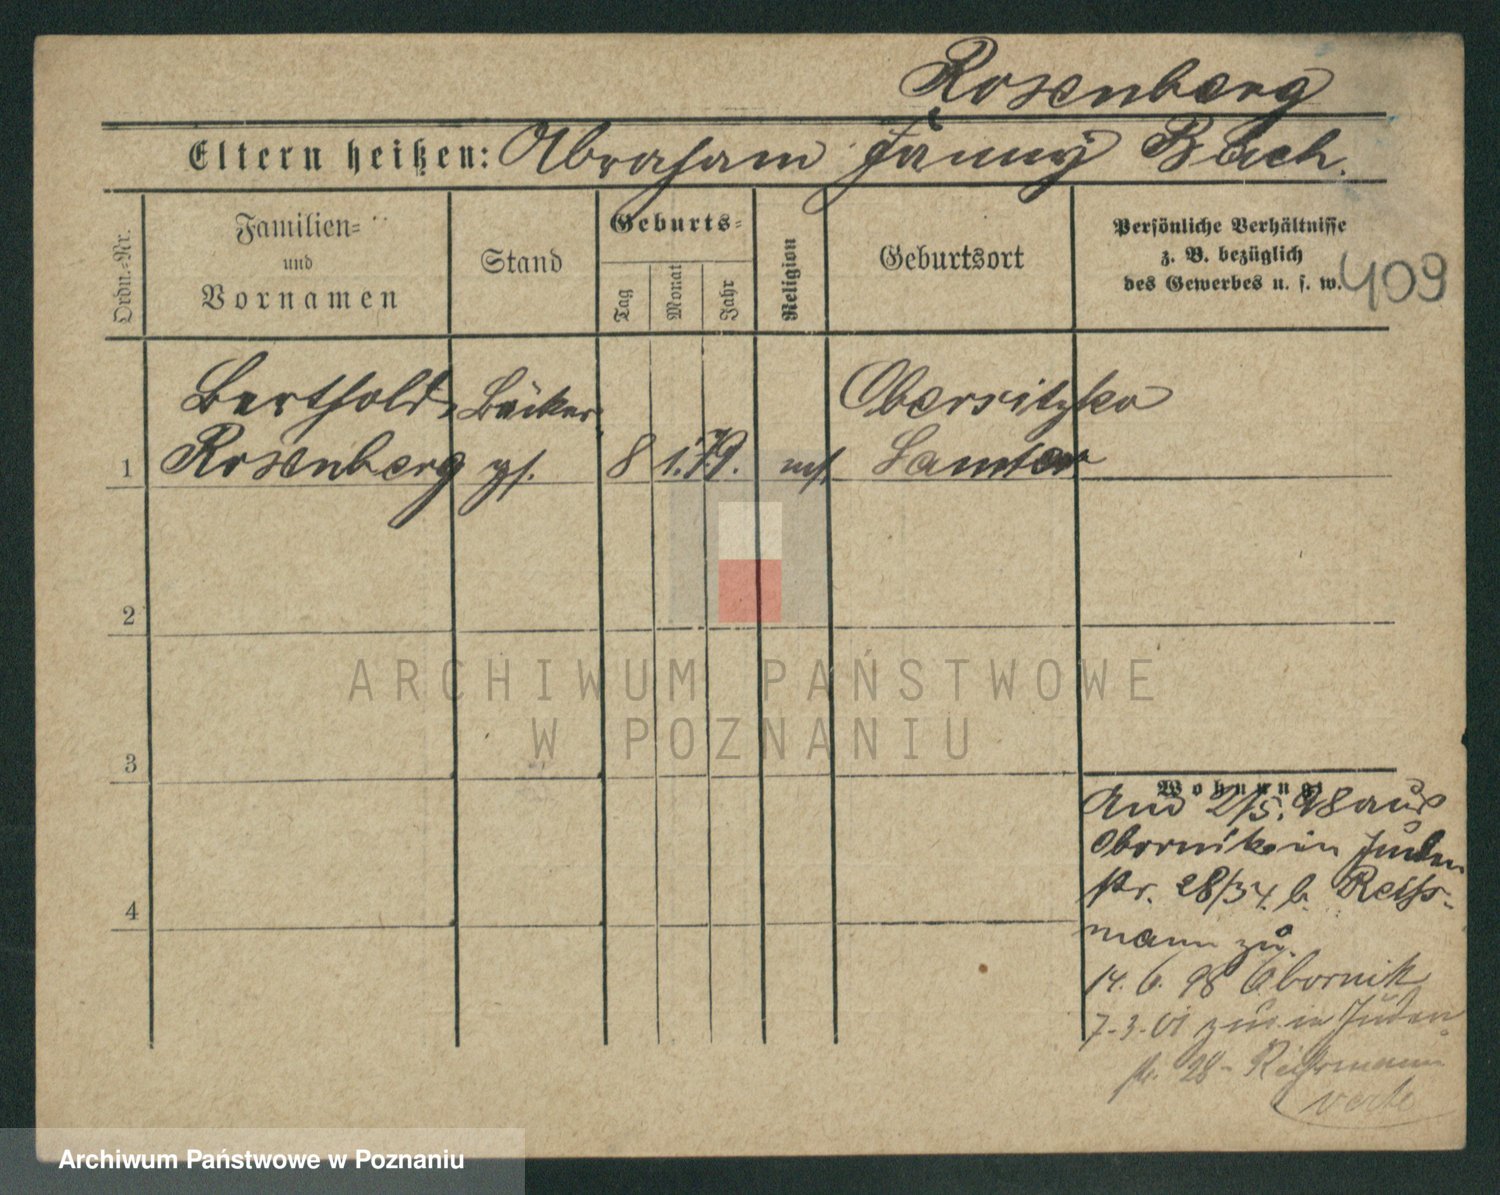 Rosenberg
Eltern heißen: Abraham Fanny Bach.
Ordn.-Nr.
Familien-
und
Vornamen
Stand
Geburts-
Tag
Monat
Jahr
Religion
Geburtsort
Persönliche Verhältnisse
z. B. bezüglich
des Gewerbes u. s. w.
409
Berthold Bäcker Obersitzko
1 Rosenberg gs. 8 1. 79. mos. Samter
2
3
4
Wohnung
2/5. 98 aus
Obornik in Juden
str. 28/34. b. Reiss-
mann zu.
14. 6. 98 Obornik
7. 3. 01 zur. in Juden
str. 28 - Reissmann
verte
ARCHIWUM PAŃSTWOWE
W POZNANIU
Archiwum Państwowe w Poznaniu